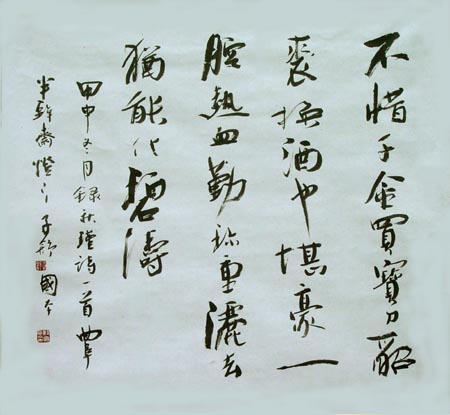 不惜千金買寶刀貂
裘換酒也堪豪一
腔熱血勤珍重灑去
猶能化碧濤
甲申冬月錄秋瑾詩一首
半齋燈下子國